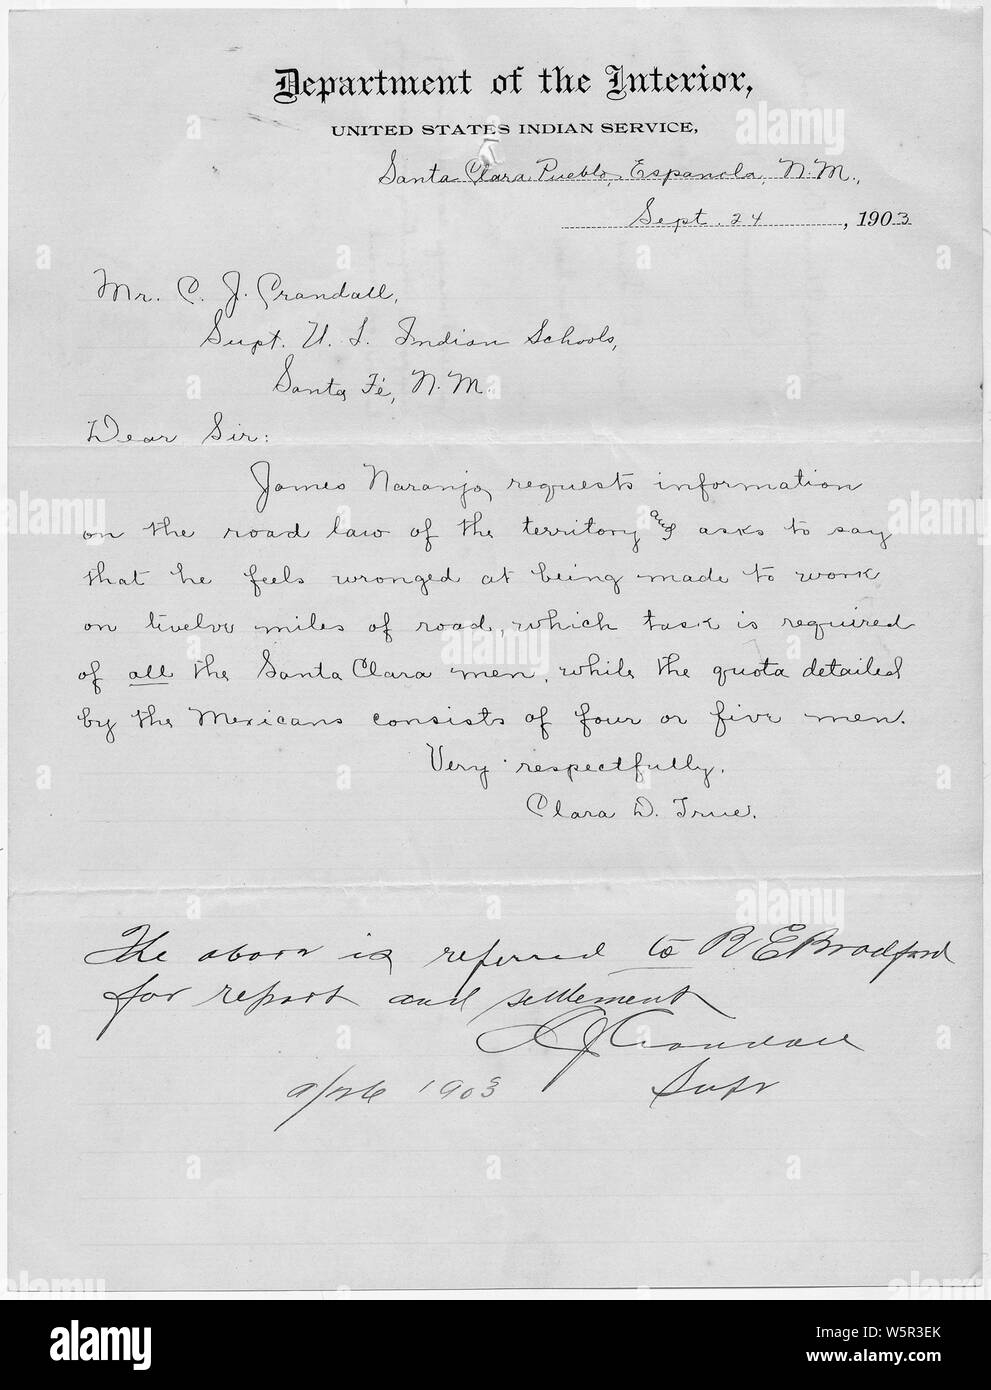 Department of the Interior,
UNITED STATES INDIAN SERVICE,
Santa Clara Pueblo, Espanola, N.M.,
Sept. 24, 1903
Mr. C. J. Crandall,
Supt. U. S. Indian Schools,
Santa Fé, N.M.
Dear Sir:
James Naranjo requests information
on the road law of the territory and asks to say
that he feels wronged at being made to work
on twelve miles of road, which task is required
of all the Santa Clara men, while the quota detailed
by the Mexicans consists of four or five men.
Very respectfully,
Clara D. True.
The above is referred to R E Bradford
for report and settlement
C J Crandall
9/26 1903 Supt
alamy
Image ID: W5R3EK
www.alamy.com